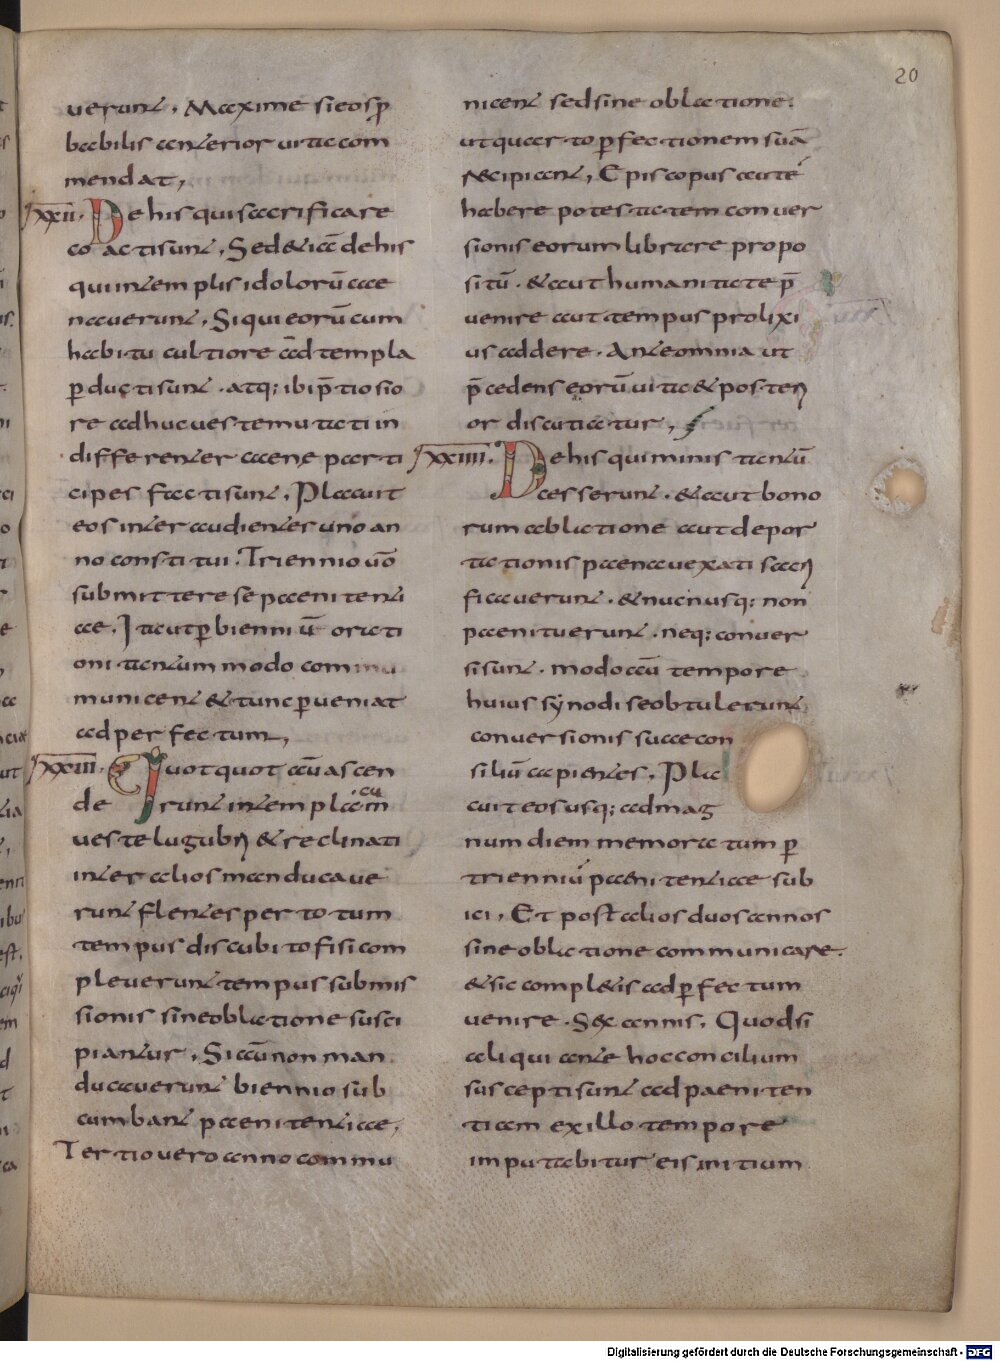 20
uerunt, Maxime si eos p̄
babilis anterior uita com
mendat,
xxii. De his qui sacrificare
coacti sunt, Sed & iā de his
qui in templis idolorū cae
nauerunt, Si qui eorū cum
habitu cultiore ād templa
p ducti sunt. atq; ibi p̄tiosio
re adhuc ueste mutati in
differenter caene parti
cipes facti sunt, Placuit
eos inter audientes uno an
no constitui. Triennio uō
submittere se paenitenti
ae. Ita ut p biennium orati
oni tantum modo commu
municent & tunc pueniat
ad perfectum,
xxiii. Quotquot aū ascen
derunt in templa cum
ueste lugubri & reclinati
inter alios manducaue
runt flentes per totum
tempus discubito fisi com
pleuerunt tempus submis
sionis sine oblatione susci
piantur, Si aū non man
ducauerunt biennio sub
cumbant paenitentiae,
Tertio uero anno commu
nicent sed sine oblatione.
ut quarto pfectionem suā
recipiant, Episcopus autē
habere potestatem conuer
sionis eorum librare propo
sitū. & aut humanitate p̄
uenire aut tempus prolixi
us addere. Ante omnia ut
p̄cedens eorū uita & posteri
or discutiatur,
xxiiii. De his qui minis tantū
cesserunt. & aut bono
rum ablatione aut depor
tationis paena uexati sacri
ficauerunt. & nuc usq; non
paenituerunt. neq; conuer
si sunt. modo aū tempore
huius synodi se obtulerunt
conuersionis suae con
siliū capientes, Pla
cuit eos usq; ad mag
num diem memoratum p
trienniū paenitentiae sub
ici, Et post alios duos annos
sine oblatione communicare.
& sicompl&is ad pfectum
uenire. Sex annis, Quod si
aliqui ante hoc concilium
suscepti sunt ad paeniten
tiam ex illo tempore
imputabitur eis initium
Digitalisierung gefördert durch die Deutsche Forschungsgemeinschaft - DFG